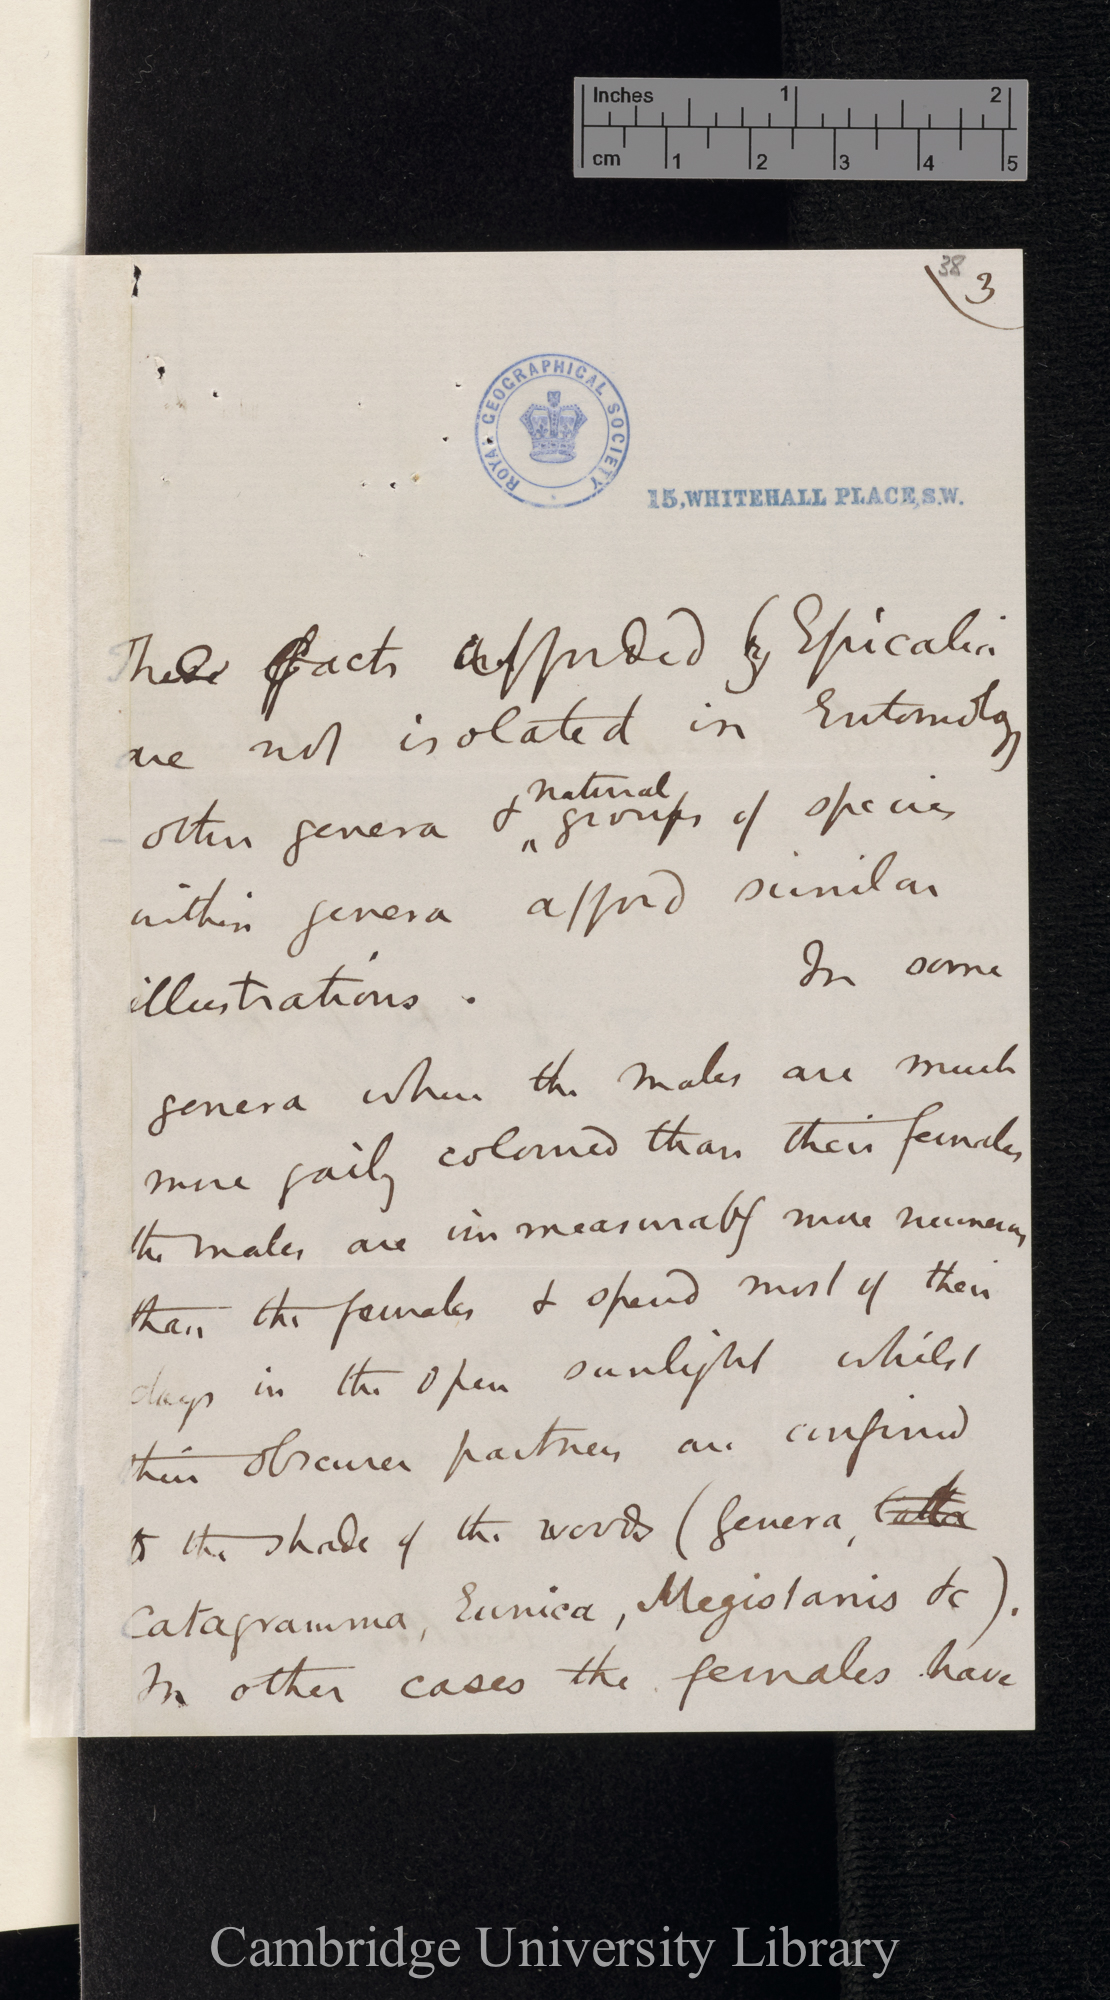 Inches 1 2
cm 1 2 3 4 5
38
3
ROYAL GEOGRAPHICAL SOCIETY
15, WHITEHALL PLACE, S.W.
These facts afforded by Epicalia
are not isolated in Entomology
other genera & natural groups of species
within genera afford similar
illustrations. In some
genera when the males are much
more gaily coloured than their females
the males are immeasurably more numerous
than the females & spend most of their
days in the open sunlight whilst
their obscurer partners are confined
to the shade of the woods (genera,
Catagramma, Eunica, Megistanis &c).
In other cases the females have
Cambridge University Library